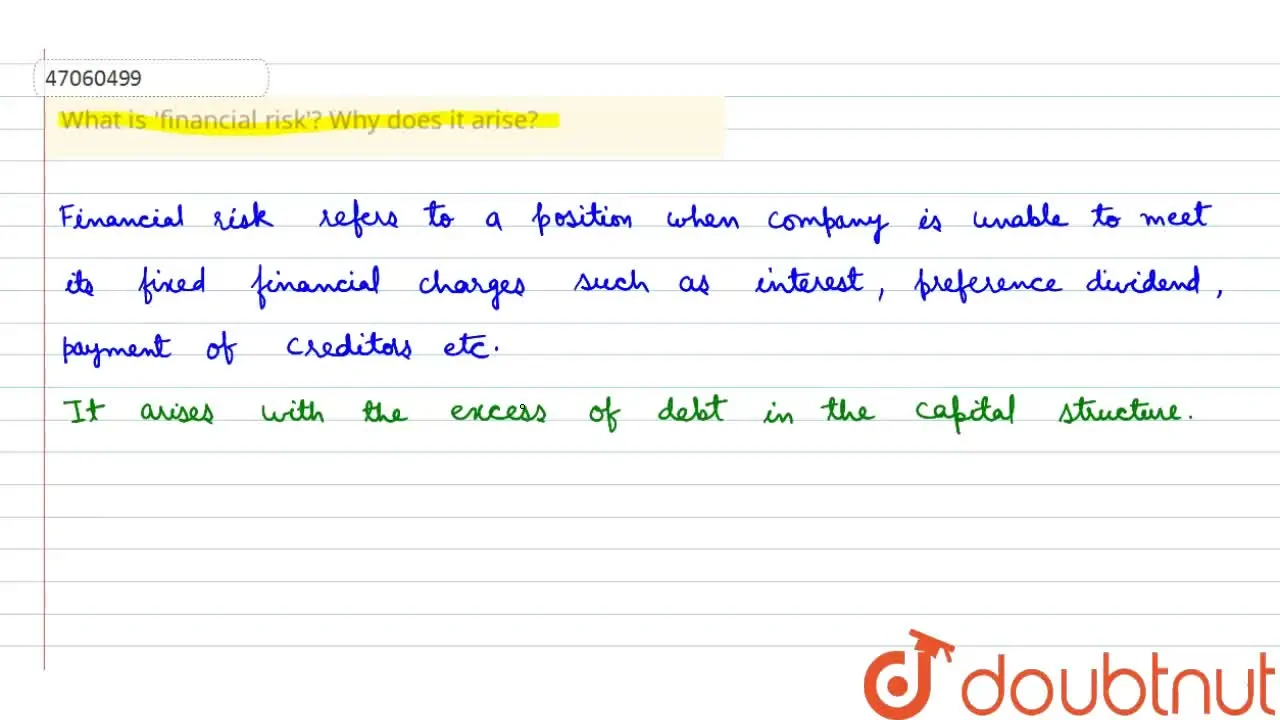 47060499
What is 'financial risk'? Why does it arise?
Financial risk refers to a position when company is unable to meet
its fixed financial charges such as interest, preference dividend,
payment of creditors etc.
It arises with the excess of debt in the capital structure.
doubtnut